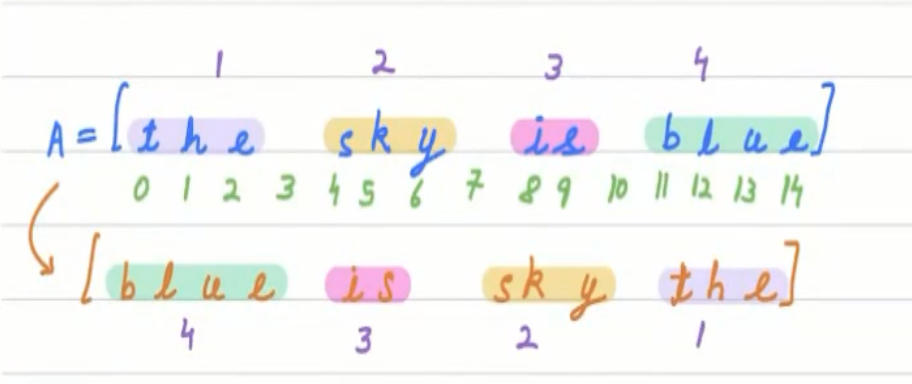 1 2 3 4
A = [the sky is blue]
0 1 2 3 4 5 6 7 8 9 10 11 12 13 14
[blue is sky the]
4 3 2 1